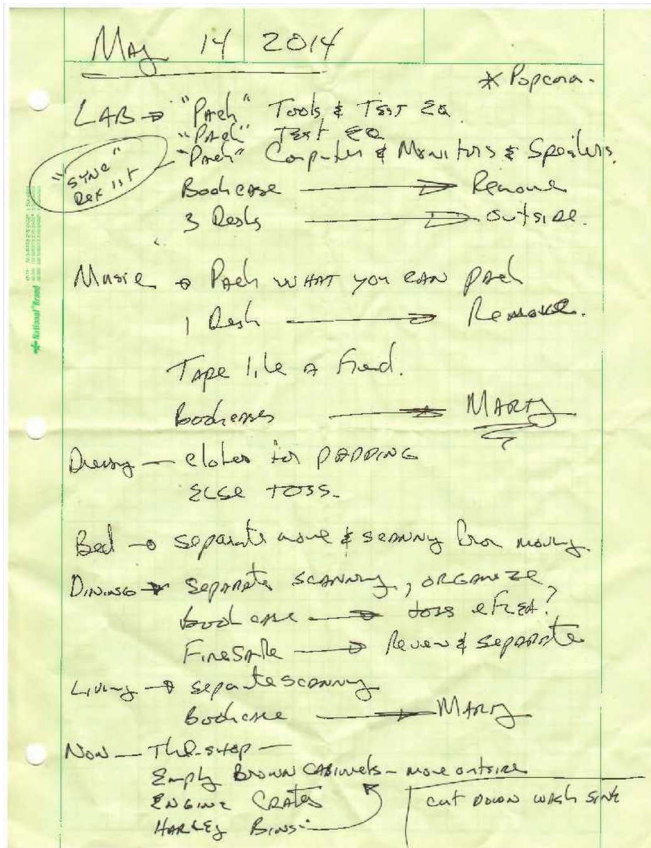 May 14 2014
* Popcorn.
LAB → "Pack" Tools & Test EQ.
"Pack" Test EQ
"Pack" Computer & Monitors & Speakers.
"SYNC"
Bookcase → Remove
3 Desks → outside.
National Brand
Music → Pack WHAT YOU CAN pack
1 Desk → Remove.
Tape like a fiend.
Bookcases → MARTY
Dressing — clothes for PADDING
ELSE TOSS.
Bed → separate move & scanning from moving.
DINING → separate SCANNING, ORGANIZE,
bookcase → toss
FireSafe → Review & separate
Living → separate scanning
Bookcase → MARTY
Now — The shop —
Empty BROWN CABINETS — move outside
ENGINE CRATES
HARLEY BINS
cut DOWN wash SINK